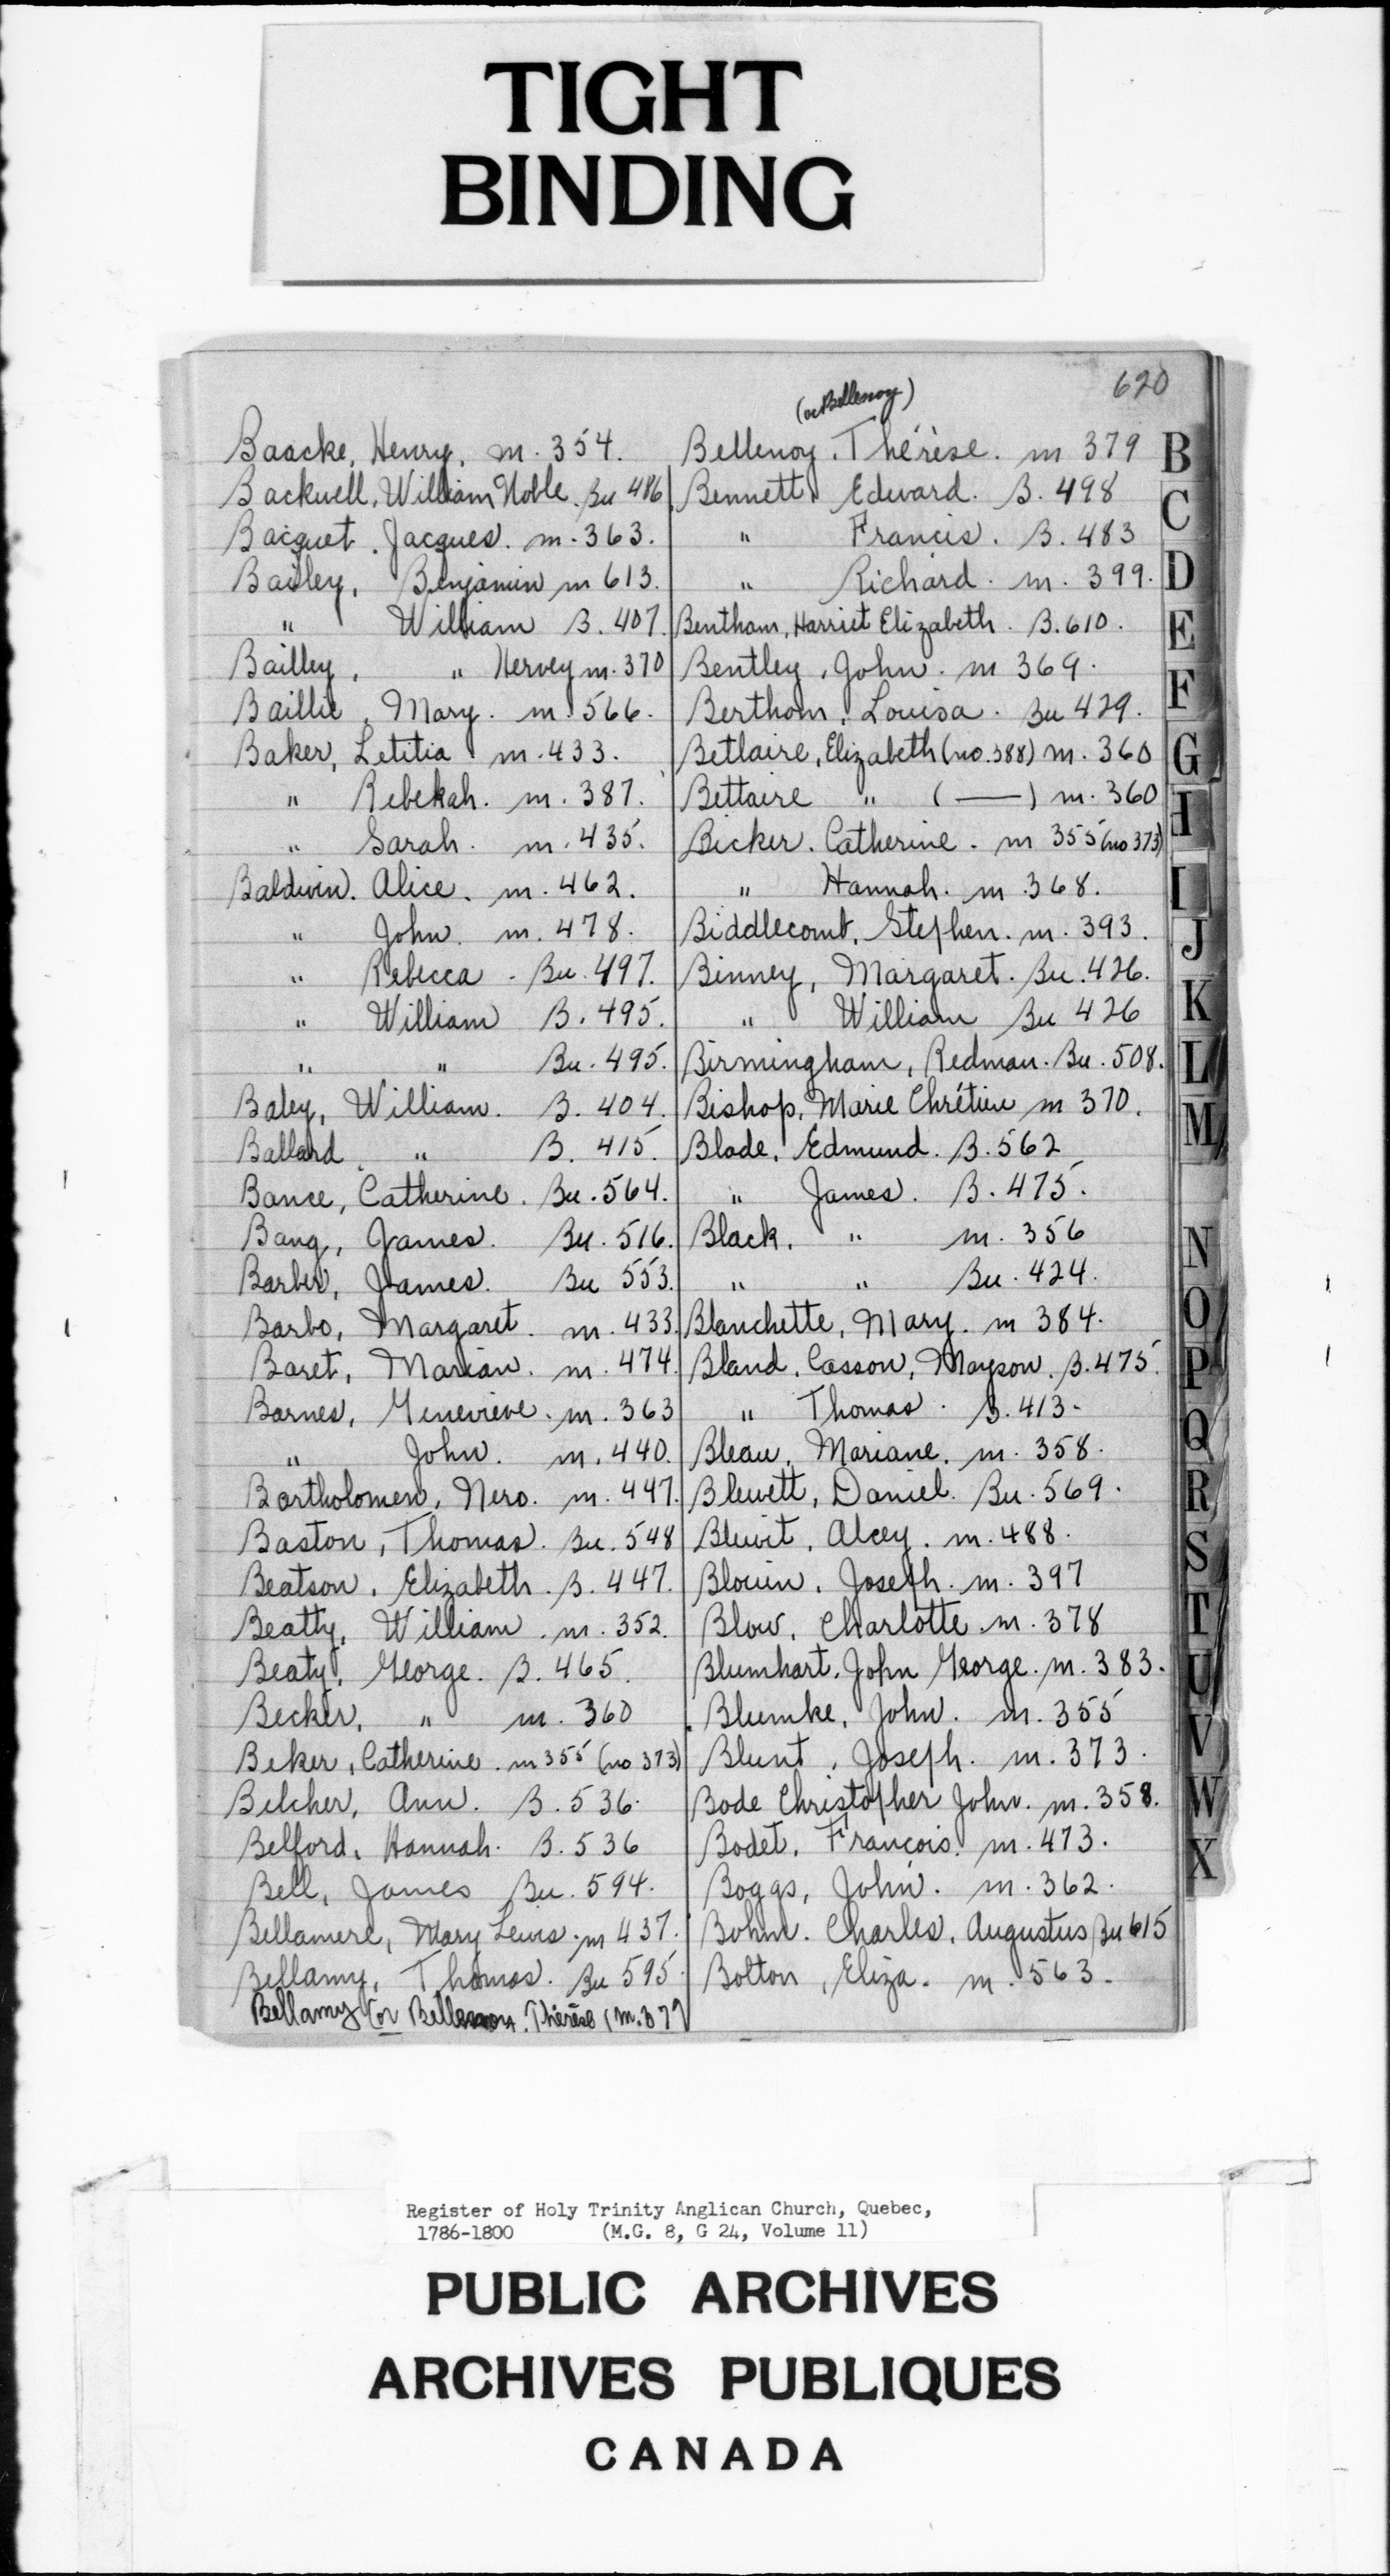 TIGHT
BINDING
620
Baacke, Henry, m. 354.
Backwell, William Noble. Bu 486
Bacquet, Jacques. m. 363.
Bailey, Benjamin m 613.
" William B. 407.
Bailley, " Hervey m. 370
Baillie, Mary. m. 566.
Baker, Letitia m. 433.
" Rebekah. m. 387.
" Sarah. m. 435.
Baldwin. Alice. m. 462.
" John. m. 478.
" Rebecca. Bu. 497.
" William B. 495.
" " Bu. 495.
Baley, William. B. 404.
Ballard " B. 415.
Bance, Catherine. Bu. 564.
Bang, James. Bu. 516.
Barber, James. Bu 553.
Barbo, Margaret. m. 433.
Baret, Marian. m. 474.
Barnes, Genevieve. m. 363
" John. m. 440.
Bartholomew, Nero. m. 447.
Baston, Thomas. Bu. 548
Beatson, Elizabeth. B. 447.
Beatty, William. m. 352.
Beaty, George. B. 465.
Becker, " m. 360
Beker, Catherine. m 355 (no 373)
Belcher, Ann. B. 536.
Belford, Hannah. B. 536
Bell, James Bu. 594.
Bellamere, Mary Lewis. m 437.
Bellamy, Thomas. Bu 595.
Bellamy (or Thérèse (m.
(or Bellenoy)
Bellenoy. Thérèse. m 379
Bennett, Edward. B. 498
" Francis. B. 483
" Richard. m. 399.
Bentham, Harriet Elizabeth. B. 610.
Bentley, John. m 369.
Berthom, Louisa. Bu 429.
Betlaire, Elizabeth (no. 388) m. 360
Bettaire " ( — ) m. 360
Bicker. Catherine. m 355 (no 373)
" Hannah. m. 368.
Biddlecomb, Stephen. m. 393.
Binney, Margaret. Bu. 426.
" William Bu 426
Birmingham, Redman. Bu. 508.
Bishop, Marie Chrétien m 370.
Blade, Edmund. B. 562
" James. B. 475.
Black, " m. 356
" " Bu. 424.
Blanchette, Mary. m 384.
Bland, Casson, Mayson. B. 475.
" Thomas. B. 413.
Bleau, Mariane. m. 358.
Blewett, Daniel. Bu. 569.
Blewit, Alcey. m. 488.
Blouin, Joseph. m. 397
Blow, Charlotte. m. 378
Blumhart, John George. m. 383.
Blumke, John. m. 355
Blunt, Joseph. m. 373.
Bode Christopher John. m. 358.
Bodet, François. m. 473.
Boggs, John. m. 362.
Bohm. Charles, Augustus Bu 615
Bolton, Eliza. m. 563.
B
C
D
E
F
G
H
I
J
K
L
M
N
O
P
Q
R
S
T
U
V
W
X
Register of Holy Trinity Anglican Church, Quebec,
1786-1800 (M.G. 8, G 24, Volume 11)
PUBLIC ARCHIVES
ARCHIVES PUBLIQUES
CANADA